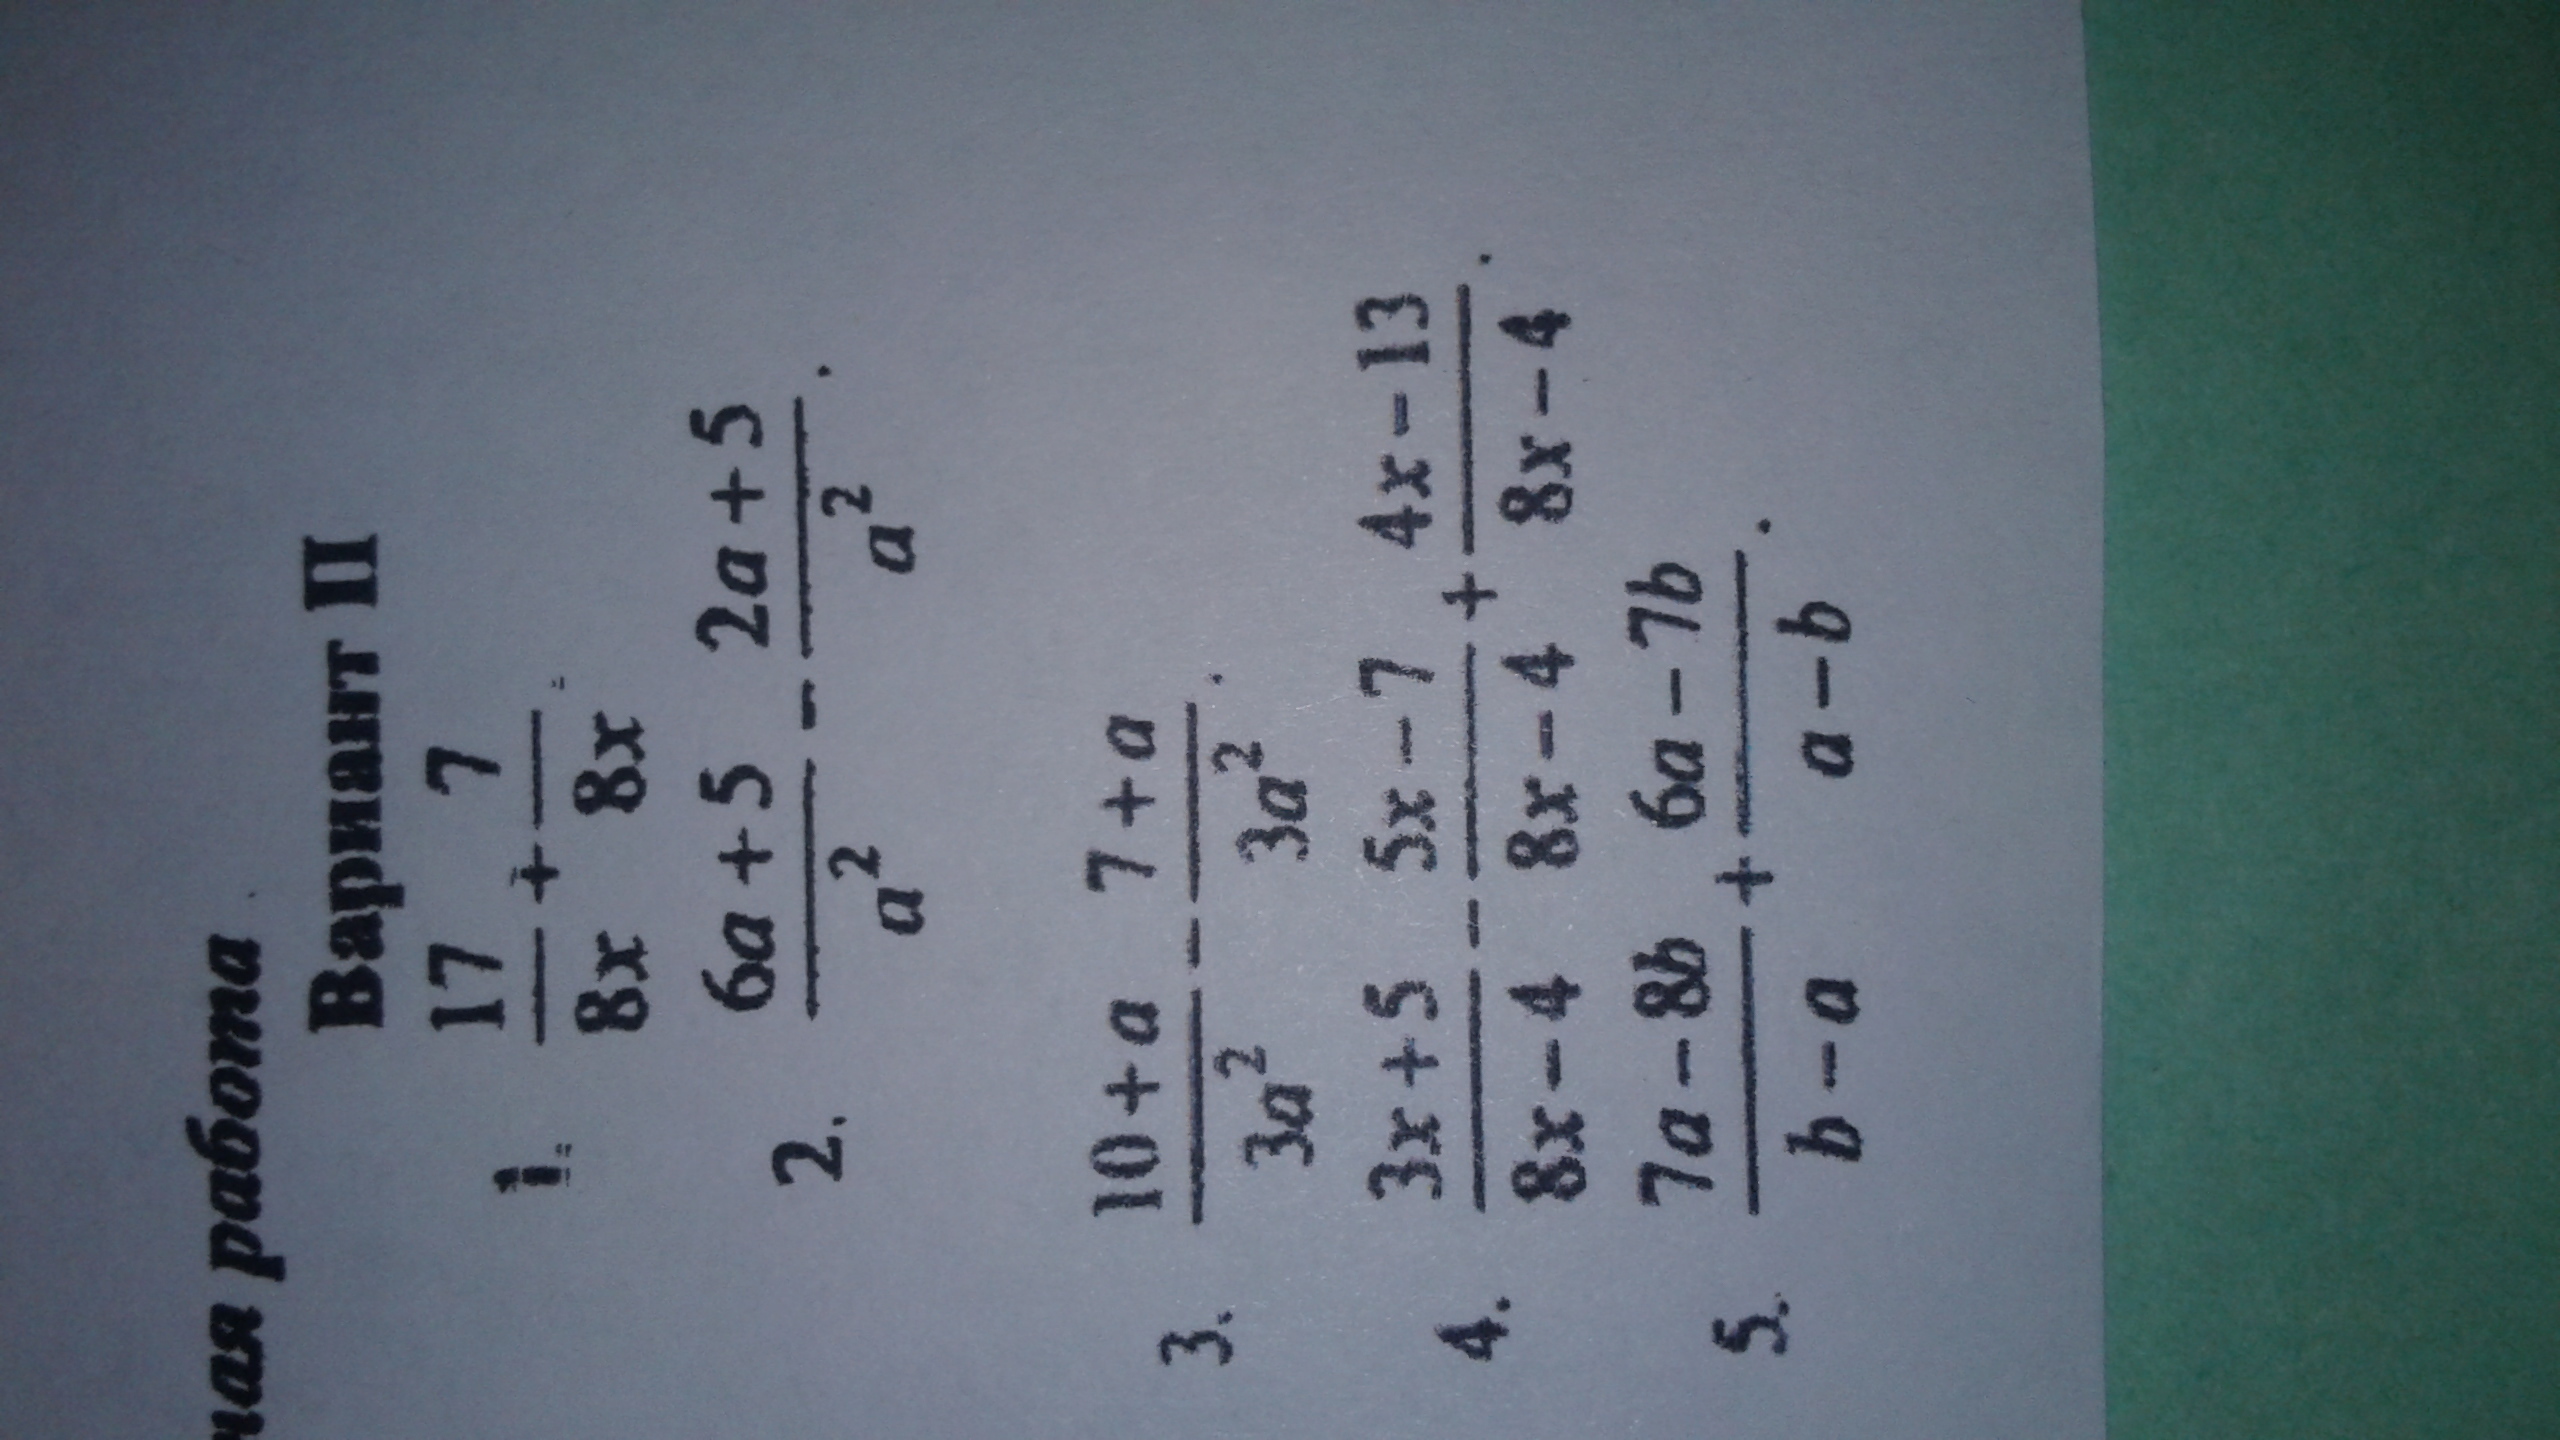 ная работа
Вариант II
1. 17/8x + 7/8x.
2. (6a + 5)/a² − (2a + 5)/a².
3. (10 + a)/3a² − (7 + a)/3a².
4. (3x + 5)/(8x − 4) − (5x − 7)/(8x − 4) + (4x − 13)/(8x − 4).
5. (7a − 8b)/(b − a) + (6a − 7b)/(a − b).